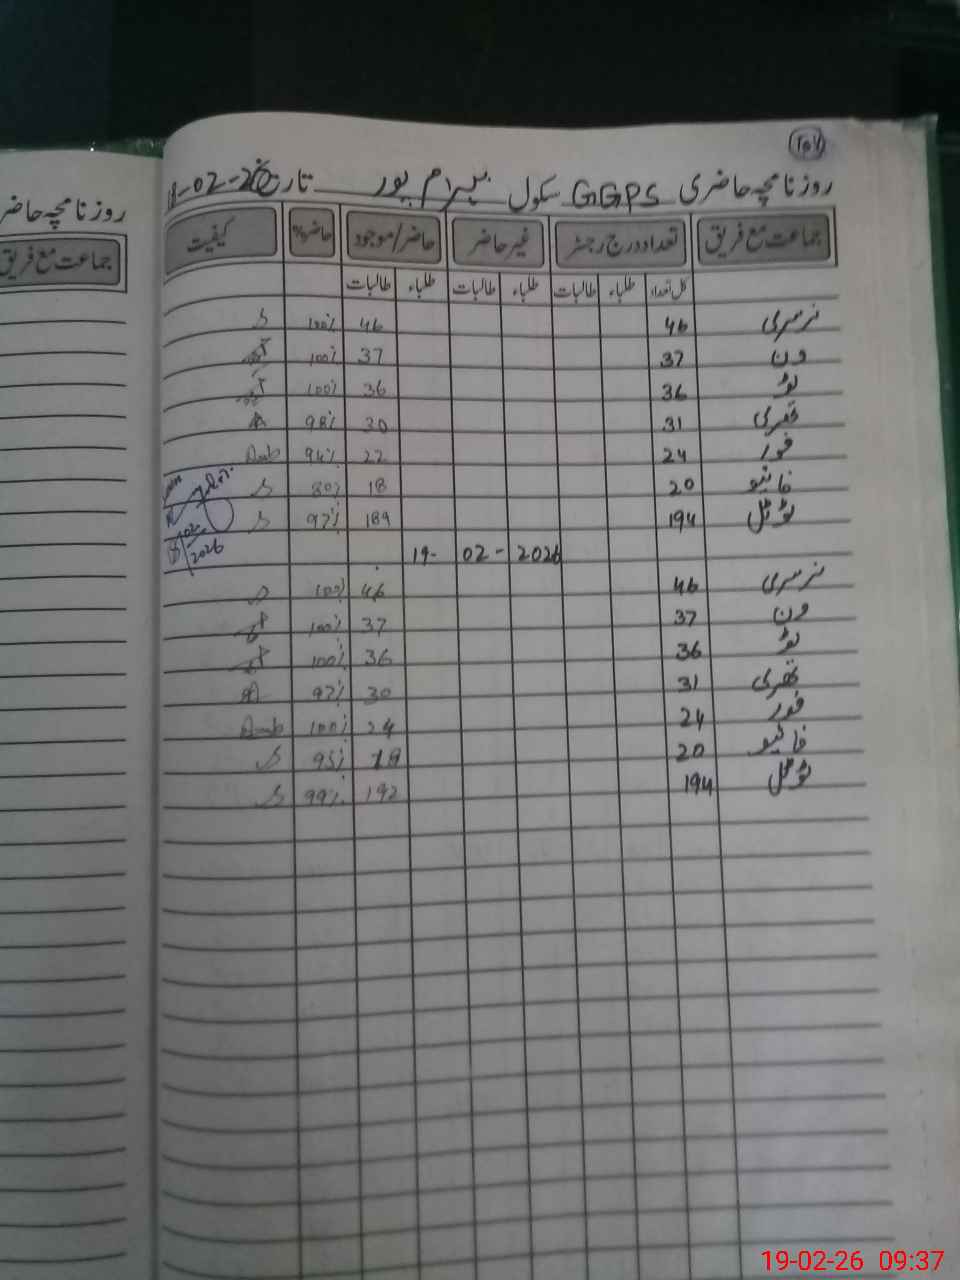 ۱۵۷
روزنامچہ حاضری GGPS سکول بہرام پور تاریخ 18-02-26
جماعت مع فریق تعداد درج رجسٹر غیر حاضر حاضر/موجود حاضر% کیفیت
کل تعداد طلباء طالبات طلباء طالبات طلباء طالبات
نرسری 46 46 100%
ون 37 37 100%
ٹو 36 36 100%
تھری 31 30 98%
فور 24 22 94%
فائیو 20 18 80%
ٹوٹل 194 189 97%
19-02-2026
نرسری 46 46 100%
ون 37 37 100%
ٹو 36 36 100%
تھری 31 30 97%
فور 24 24 100%
فائیو 20 19 95%
ٹوٹل 194 192 99%
روزنامچہ حاضر
جماعت مع فریق
19-02-26 09:37